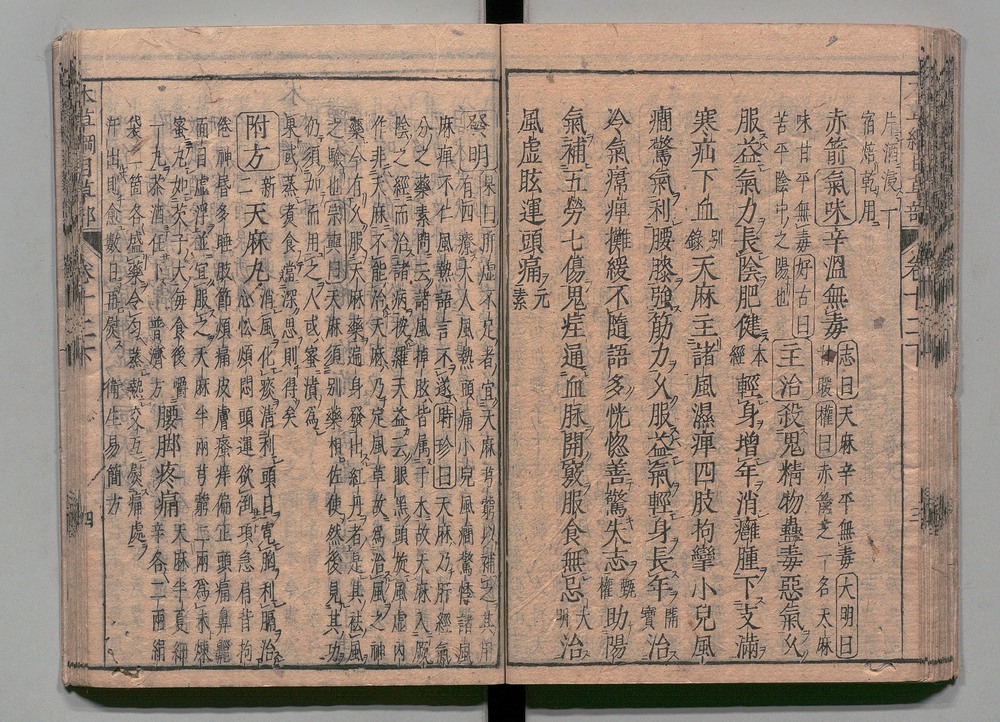 片酒浸一
宿焙乾用
赤箭氣味辛溫無毒志曰天麻辛平無毒大明曰
味甘平無毒好古曰
苦平陰中之陽也
權曰赤箭芝一名天麻
主治殺鬼精物蠱毒惡氣久
服益氣力長陰肥健本經輕身增年消癰腫下支滿
寒疝下血別錄天麻主諸風濕痺四肢拘攣小兒風
癇驚氣利腰膝強筋力久服益氣輕身長年開寶治
冷氣㿏痺攤緩不隨語多恍惚善驚失志甄權助陽
氣補五勞七傷鬼疰通血脉開竅服食無忌大明治
風虛眩運頭痛元素
發明杲曰肝虛不足者宜天麻芎藭以補之其用
有四療大人風熱頭痛小兒風癇驚悸諸風
麻痺不仁風熱語言不遂時珍曰天麻乃肝經氣
分之藥素問云諸風掉眩皆屬于木故天麻入厥
陰之經而治諸病按羅天益云眼黑頭旋風虛內
作非天麻不能治天麻乃定風草故爲治風之神
藥今有久服天麻藥遍身發出紅丹者是其祛風
之驗也宗奭曰天麻須別藥相佐使然後見其功
仍須加而用之人或蜜漬爲
果或蒸煮食當深思則得矣
附方新二天麻丸消風化痰清利頭目寬胸利膈治
心忪煩悶頭運欲倒項急肩背拘
倦神昏多睡肢節煩痛皮膚瘙痒偏正頭痛鼻齆
面目虛浮並宜服之天麻半兩芎藭二兩爲末煉
蜜丸如芡子大每食後嚼
一丸茶酒任下普濟方腰脚疼痛天麻半夏細
辛各二兩絹
袋二箇各盛藥令勻蒸熱交互熨痛處
汗出則愈數日再熨衛生易簡方
本草綱目草部
卷十二下
四